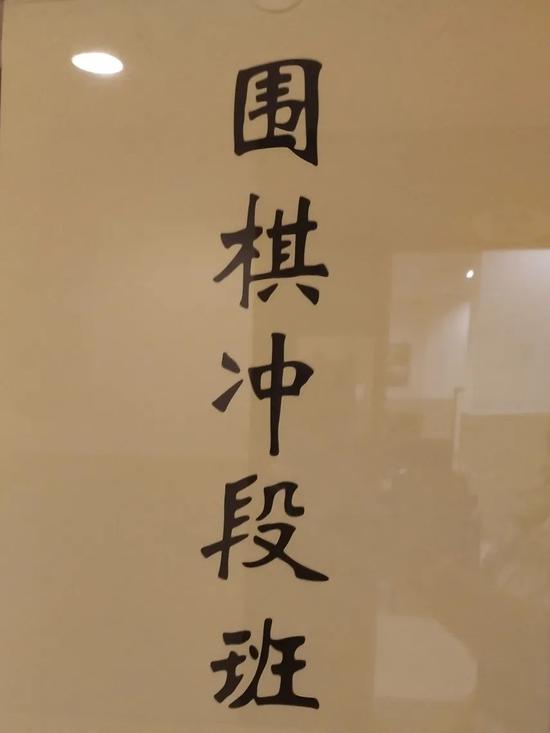 围棋冲段班